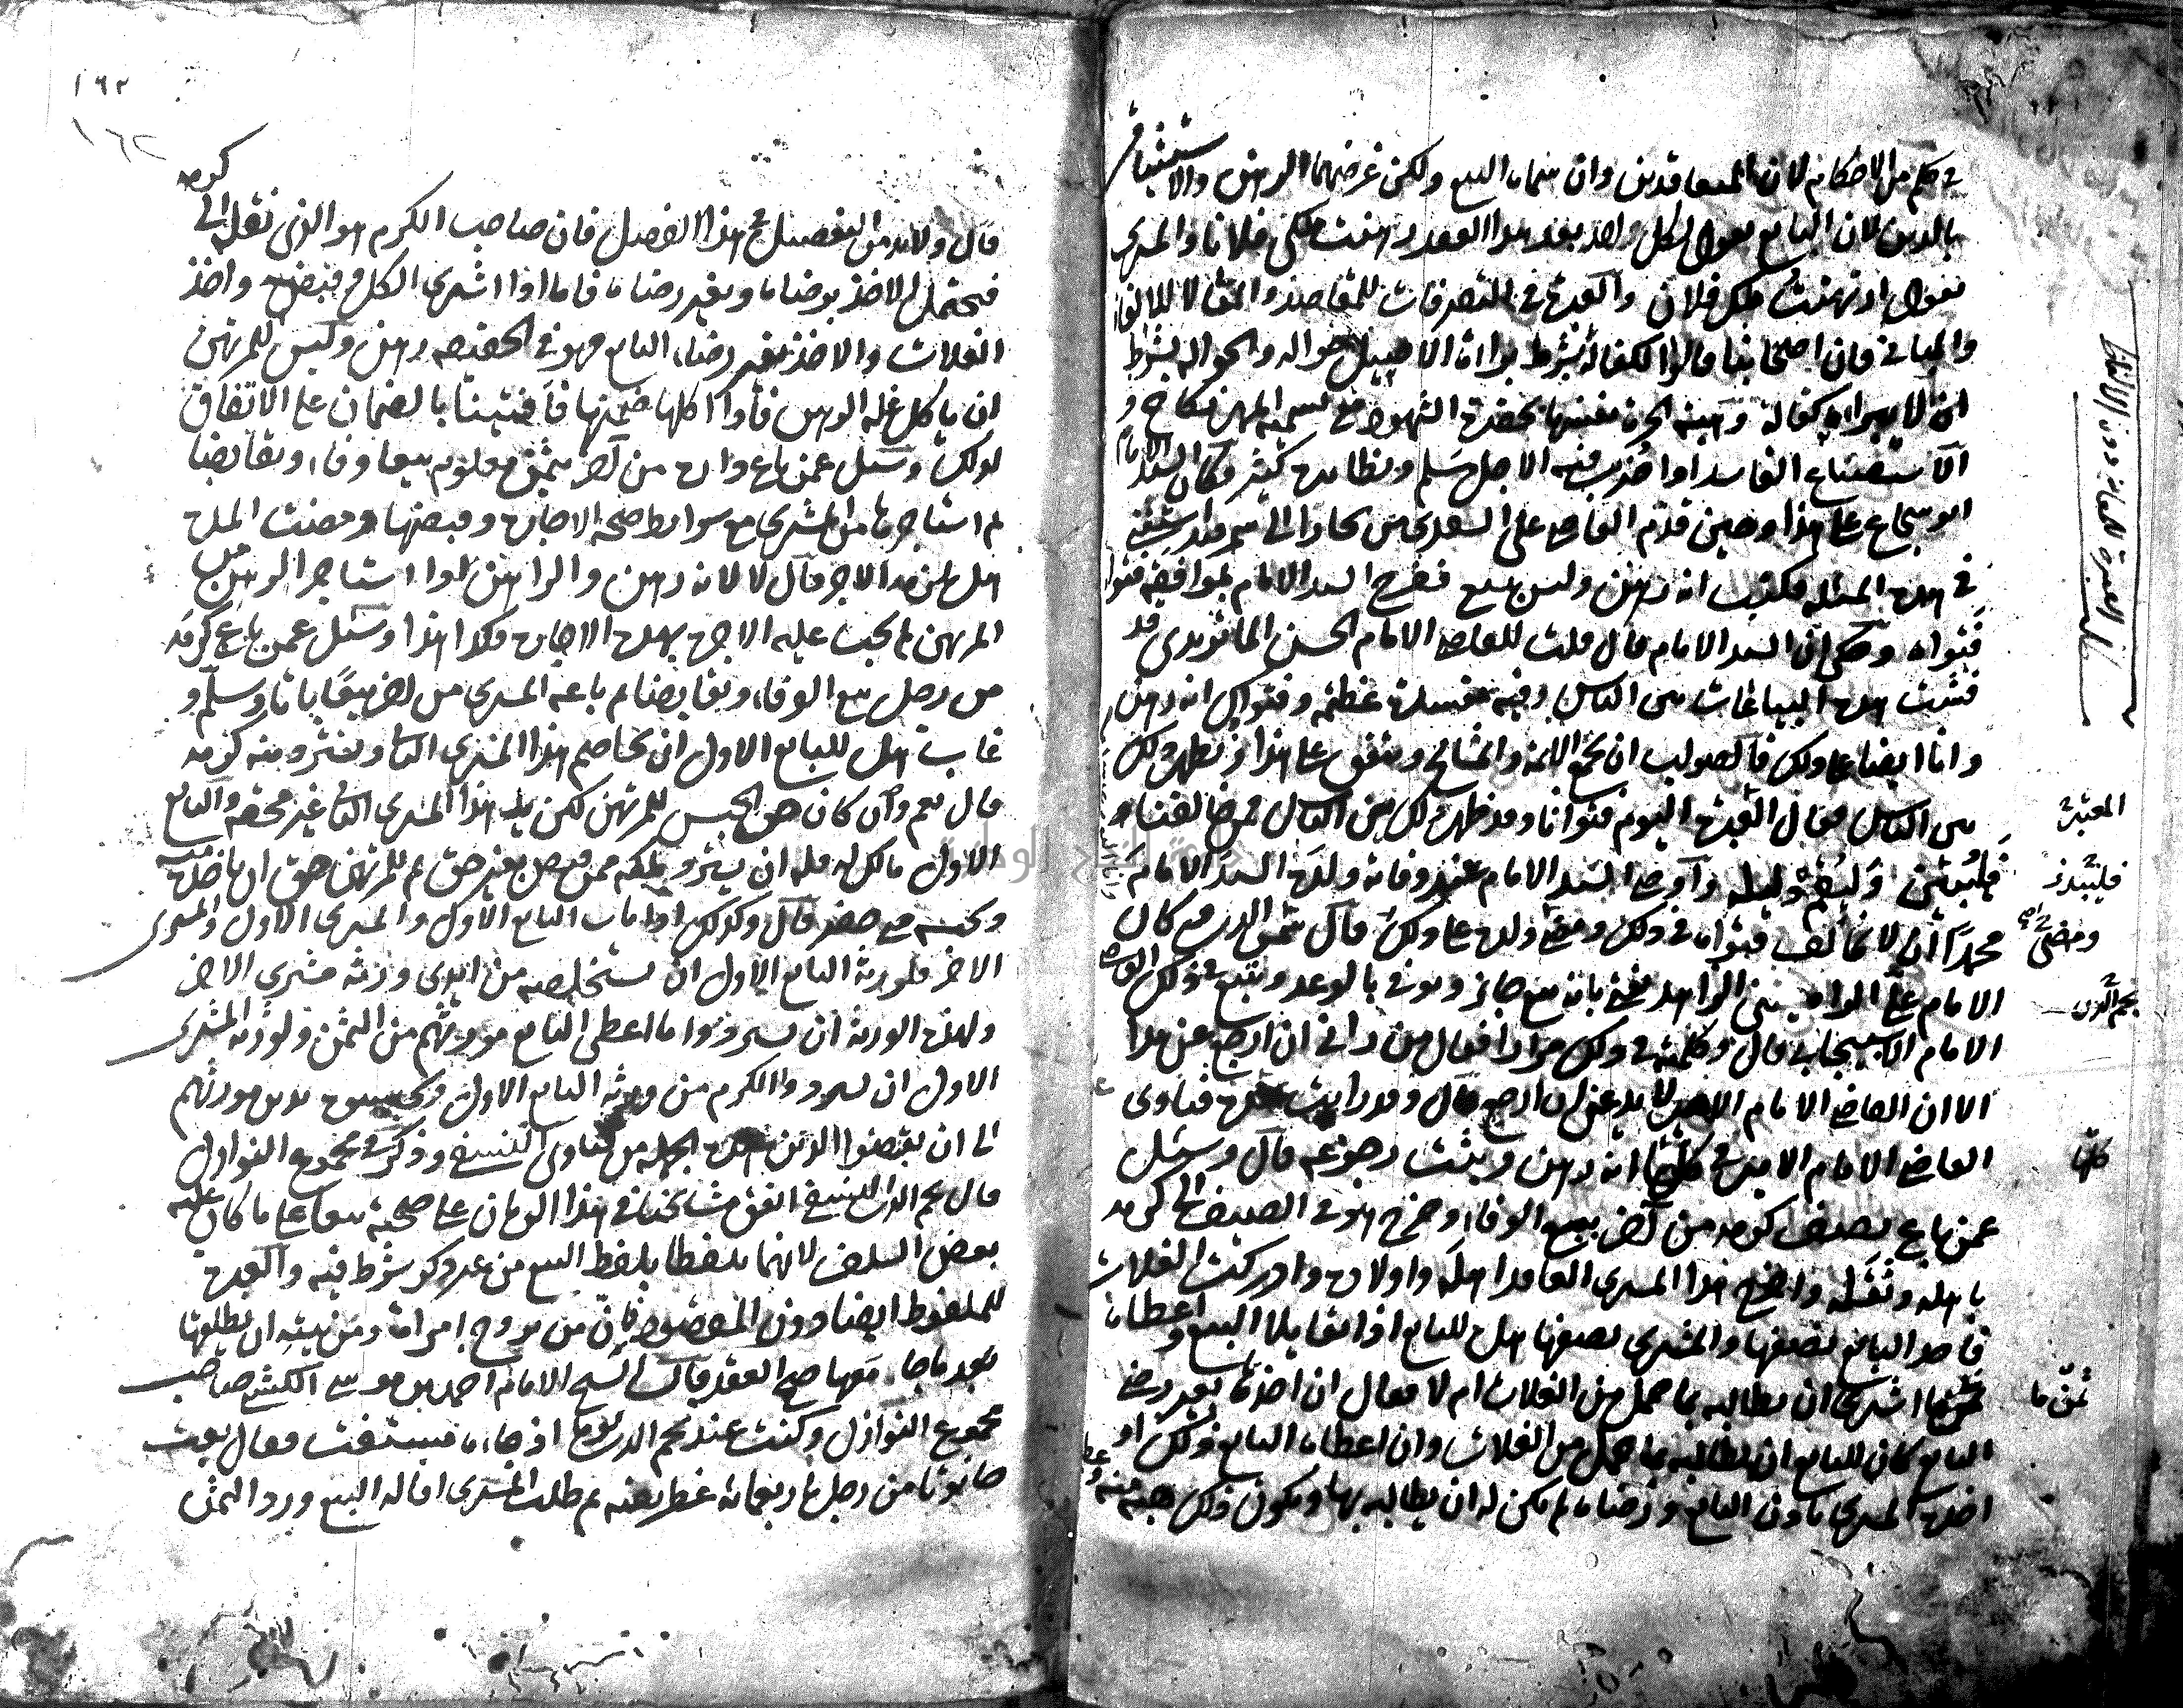 في حكم من الاحكام لان المتعاقدين وان سمياه البيع ولكن غرضهما الرهن والاستيثاق
بالدين لان البايع يقول لكل واحد بعد هذا العقد رهنت ملكي فلانا والمشتري
يقول ارتهنت ملك فلان والعبرة في التصرفات للمقاصد والمعاني لا للالفاظ
والمباني فان اصحابنا قالوا الكفالة بشرط براءة الاصيل حوالة والحوالة بشرط
ان لا يبرا كفالة وهبة الحرة نفسها بحضرة الشهود مع تسمية المهر نكاح و
الاستصناع الفاسد اذا ضرب فيه الاجل سلم ونظايره كثيرة وكان السيد الامام
ابو شجاع على هذا وحين قدم القاضي علي السغدي من بخارا الى سمرقند استفتي
في هذه المسئلة فكتب انه رهن وليس ببيع ففرح السيد الامام لموافقة فتواه
فتواه وحكي ان السيد الامام قال قلت للقاضي الامام الحسن الماتريدي قد
فشت هذه البياعات بين الناس وفيه مفسدة عظيمة وفتواك انه رهن
وانا ايضا على ذلك فالصواب ان نجمع الائمة والمشايخ ونتفق على هذا ونظهر ذلك
بين الناس فقال العبرة اليوم فتوانا وقد ظهر ذلك بين الناس فمن خالفنا
فليبرز وليقم دليله واوصى السيد الامام عند وفاته ولده السيد الامام
محمدا ان لا تخالف فتواه في ذلك ومضى ولده على ذلك قال نجم الدين كان
الامام علي الزاهد يفتي بانه بيع جائز ويوفي بالوعد ويتبع في ذلك القاضي
الامام الاسبيجابي قال وكلمته في ذلك مرارا فقال من راني ان ارجع عن هذا
الا ان القاضي الامام لا يدعني ان ارجع قال وقد رايت فتاوى
القاضي الامام في كلها انه رهن ويثبت رجوعه قال وسئل
عمن باع نصف كرمه من اخر بيع الوفاء وخرج هو في الصيف الى كرمه
باهله وثقله واخرج هذا المشتري العاقد اهله واولاده وادركت الغلات
فاخذ البايع نصفها والمشتري نصفها هل للبايع اذا تقايلا البيع واعطاه
ثمن ما اشترى ان يطالبه بما حمل من الغلات ام لا فقال ان اخذها بغير رضى
البايع كان للبايع ان يطالبه بما حمل من الغلات وان اعطاه البايع ذلك او
اخذه المشتري باذن البايع ورضاه لم يكن له ان يطالبه بها ويكون ذلك هبة منه
المعتبر
فليبرز
ومضى
نجم الدين
كلها
ثمن ما
١٦٢
١٦٢
قال ولا بد من التفصيل في هذا الفصل فان صاحب الكرم هو الذي نقله الى كرمه
فيحتمل الاخذ برضاه وبغير رضاه فاما اذا اشترى الكل وقبض واخذ
الغلات والاخذ بغير رضاء البايع فهو في الحقيقة رهن وليس للمرتهن
ان ياكل غلة الرهن فاذا اكلها ضمنها فافتينا بالضمان على الاتفاق
لذلك وسئل عمن باع داره من اخر بثمن معلوم بيعا وفاء وتقابضا
ثم استاجرها من المشتري مع شرايط صحة الاجارة وقبضها ومضت المدة
هل يلزمه الاجر قال لا لانه رهن والراهن اذا استاجر الرهن من
المرتهن لم يجب عليه الاجرة بهذه الاجارة فكذا هذا وسئل عمن باع كرمه
من رجل بيع الوفاء وتقابضا ثم باعه المشتري من اخر بيعا باتا وسلم و
غاب هل للبايع الاول ان يخاصم هذا المشتري الثاني ويسترد منه كرمه
قال نعم وان كان حق الحبس للمرتهن لكن يد هذا المشتري الثاني غير محقة والبايع
الاول مالك له فله ان يسترد ملكه ممن قبض بغير حق ثم للمرتهن حق ان ياخذه منه
ويحبسه متى حضر قال وكذلك اذا مات البايع الاول والمشتري الاول والمشتري
الاخر فلورثة البايع الاول ان تستخلصه من ايدي ورثة مشتري الاخر
ولهذه الورثة ان يستردوا ما اعطى البايع مورثهم من الثمن ولورثة المشتري
الاول ان يستردوا الكرم من ورثة البايع الاول ويحبسوه بدين مورثهم
الى ان يقبضوا الدين هذه الجملة من فتاوى النسفي وذكر في مجموع النوازل
قال نجم الدين النسفي اتفق مشايخنا في هذا الزمان على صحته بيعا على ما كان عليه
بعض السلف لانهما تلفظا بلفظ البيع من غير ذكر شرط فيه والعبرة
للملفوظ ايضا دون المقصود فان من تزوج امراة ومن نيته ان يطلقها
بعد ما جامعها صح العقد قال الشيخ الامام احمد بن موسى الكشي صاحب
مجموع النوازل وكنت عند نجم الدين يوما اذ جاءه مستفت فقال بعت
حانوتا من رجل باربعمائة غطريفية ثم طلبت المشتري اقالة البيع ورد الثمن